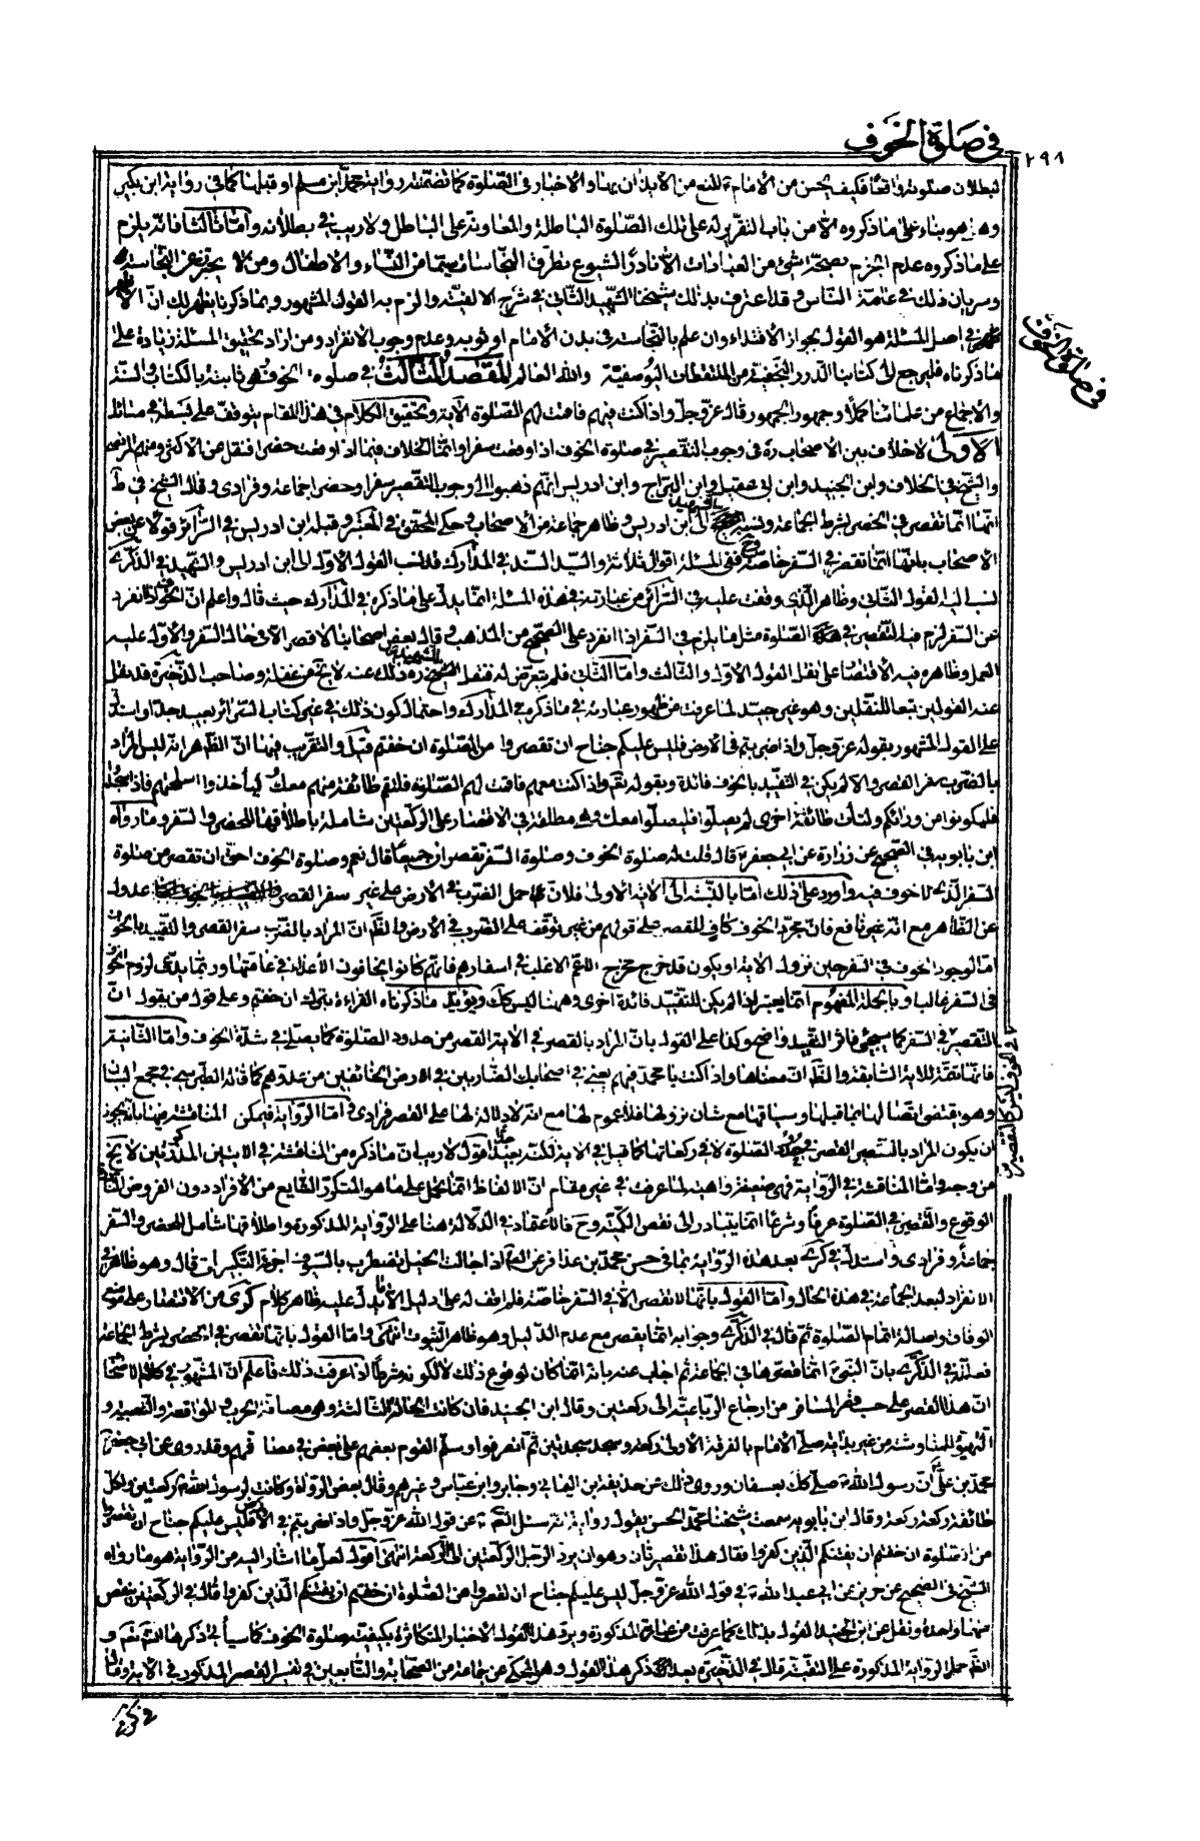 في صلوة الخوف
٢٩٨
لبطلان صلوته واقعا فكيف يحسن من الامام ع المنع من الايذان بها والاخبار في الصلوة كما تضمنته رواية محمد ابن مسلم او قبلها كما في رواية ابن بكير
وهل هو بناء على ما ذكروه الا من باب التقرير له على تلك الصلوة الباطلة والمعاونة على الباطل ولا ريب في بطلانه واما ثالثا فانه يلزم
على ما ذكروه عدم الجزم بصحة شيء من العبادات الا نادرا لشيوع تطرق النجاسات سيما من النساء والاطفال ومن لا يحترز عن النجاسة
وسريان ذلك في عامة الناس وقد اعترف بذلك شيخنا الشهيد الثاني في شرح الالفية والزم به القول المشهور وبما ذكرنا يظهر لك ان الاظهر
في اصل المسئلة هو القول بجواز الاقتداء وان علم بالنجاسة في بدن الامام او ثوبه وعدم وجوب الانفراد ومن اراد تحقيق المسئلة زيادة على
ما ذكرناه فليرجع الى كتابنا الدرر النجفية من الملتقطات اليوسفية والله العالم المقصد الثالث في صلوة الخوف وهي ثابتة بالكتاب والسنة
والاجماع من علمائنا كملا وجمهور الجمهور قال عز وجل واذا كنت فيهم فاقمت لهم الصلوة الاية وتحقيق الكلام في هذا المقام يتوقف على بسطه في مسائل
الاولى لا خلاف بين الاصحاب ره في وجوب التقصير في صلوة الخوف اذا وقعت سفرا وانما الخلاف فيما اذا وقعت حضرا فنقل عن الاكثر ومنهم المرتضى
والشيخ في الخلاف وابن الجنيد وابن ابي عقيل وابن البراج وابن ادريس انهم ذهبوا الى وجوب التقصير سفرا وحضرا جماعة وفرادى وقال الشيخ في ط
انها انما تقصر في الحضر بشرط الجماعة ونسبه الى ابن ادريس وظاهر جماعة من الاصحاب وحكى المحقق في المعتبر وقبله ابن ادريس في السرائر قولا عن بعض
الاصحاب بانها انما تقصر في السفر خاصة ففي المسئلة اقوال ثلاثة والسيد السند في المدارك قد نسب القول الاول الى ابن ادريس والشهيد في الذكرى
نسب اليه القول الثاني وظاهر الذي وقفت عليه في السرائر من عبارته في هذه المسئلة انما يدل على ما ذكره في المدارك حيث قال واعلم ان الخوف اذا انفرد
عن السفر لزم فيه التقصير في الصلوة مثل ما يلزم في السفر اذا انفرد على الصحيح من المذهب وقال بعض اصحابنا لا قصر الا في حال السفر والاول عليه
العمل وظاهره فيه الاقتصار على نقل القول الاول والثالث واما الثاني فلم يتعرض له فنقل الشهيد ره ذلك عنه لا يخ من غفلة وصاحب الذخيرة قد نقل
عنه القولين تبعا للنقلين وهو غير جيد لما عرفت من ظهور عبارته في ما ذكره في المدارك واحتمال كون ذلك في غير كتاب السرائر بعيد جدا واستدل
على القول المشهور بقوله عز وجل واذا ضربتم في الارض فليس عليكم جناح ان تقصروا من الصلوة ان خفتم قيل والتقريب فيها ان الظاهر انه ليس المراد
بالضرب سفر القصر والا لم يكن في التقييد بالخوف فائدة وبقوله تعم واذا كنت معهم فاقمت لهم الصلوة فلتقم طائفة منهم معك وليأخذوا اسلحتهم فاذا سجدوا
فليكونوا من ورائكم ولتأت طائفة اخرى لم يصلوا فليصلوا معك وهي مطلقة في الاقتصار على الركعتين شاملة باطلاقها للحضر والسفر وما رواه
ابن بابويه في الصحيح عن زرارة عن ابي جعفر ع قال قلت له صلوة الخوف وصلوة السفر تقصران جميعا قال نعم وصلوة الخوف احق ان تقصر من صلوة
السفر الذي لا خوف فيه واورد على ذلك اما بالنسبة الى الاية الاولى فلان حمل الضرب في الارض على غير سفر القصر عدول
عن الظاهر مع انه غير نافع فان مجرد الخوف كاف للقصر على قولهم من غير توقف على الضرب في الارض والظ ان المراد بالضرب سفر القصر والتقييد بالخوف
اما لوجود الخوف في السفر حين نزول الاية او يكون قد خرج مخرج الاعم الاغلب في اسفارهم فانهم كانوا يخافون الاعداء في عامتها وربما يدعى لزوم الخوف
في السفر غالبا وبالجملة المفهوم انما يعتبر اذا لم يكن للتقييد فائدة اخرى وههنا ليس كك ويؤيد ما ذكرناه القراءة بترك ان خفتم وعلى قول من يقول ان
التقصير في السفر كما سيجئ فاثر التقييد واضح وكذا على القول بان المراد بالقصر في الاية القصر من حدود الصلوة كما يصلى في شدة الخوف واما الثانية
فانها تتمة للاية السابقة والظ ان معناها واذا كنت يا محمد فيهم يعني في اصحابك الضاربين في الارض الخائفين من عدوهم كما قاله الطبرسي في مجمع البيان
وهو مقتضى اتصالها بما قبلها وسياقها مع شان نزولها فلا عموم لها مع انه لا دلالة لها على القصر فرادى واما الرواية فيمكن المناقشة فيها بانه يجوز
ان يكون المراد بالتقصير القصر في حدود الصلوة لا في ركعاتها كما قيل في الاية لكنه بعيد اقول لا ريب ان ما ذكره من المناقشة في الايتين المذكورتين لا يخ
من وجه واما المناقشة في الرواية فهي ضعيفة واهية لما عرفت في غير مقام ان الالفاظ انما تحمل على ما هو المتكرر الشايع من الافراد دون الفروض النادرة
الوقوع والتقصير في الصلوة عرفا وشرعا انما يتبادر الى نقص الكمية وح فالاعتماد في الدلالة هنا على الرواية المذكورة واطلاقها شامل للحضر والسفر
جماعة وفرادى واستدل في كرى بعد هذه الرواية بما في حسن محمد بن عذافر عن الصادق اذا جالت الخيل تضطرب بالسيوف اجزأه تكبيرتان قال وهو ظاهر في
الانفراد لبعد الجماعة في هذه الحال واما القول بانها لا تقصر الا في السفر خاصة فلم اقف له على دليل الا ما يدل عليه ظاهر كلام كرى من الاقتصار على موضع
الوفاق واصالة اتمام الصلوة ثم قال في الذكرى وجوابه انما يقصر مع عدم الدليل وهو ظاهر الثبوت انتهى واما القول بانها تقصر في الحضر بشرط الجماعة
فعلله في الذكرى بان النبي ص انما قصرها في الجماعة ثم اجاب عنه بانه انما كان لوقوع ذلك لا لكونه شرطا اذا عرفت ذلك فاعلم ان المشهور في كلام الاصحاب
ان هذا القصر على حسب قصر المسافر من ارجاع الرباعية الى ركعتين وقال ابن الجنيد فان كانت الحالة الثالثة وهي مصافة الحرب والمواقعة والتعبية و
التهيؤ للمناوشة من غير بداية صلى الامام بالفرقة الاولى ركعة وسجد سجدتين ثم انصرفوا وسلم القوم بعضهم على بعض في مصافهم وقد روى عن ابي جعفر
محمد بن علي ان رسول الله ص صلى كك بعسفان وروى ذلك عن حذيفة بن اليماني وجابر وابن عباس وغيرهم وقال بعض الرواة وكانت لرسول الله ص ركعتين ولكل
طائفة ركعة ركعة وقال ابن بابويه سمعت شيخنا محمد الحسن يقول رواية انه سئل الصادق ع عن قول الله عز وجل واذا ضربتم في الارض فليس عليكم جناح ان تقصروا
من الصلوة ان خفتم ان يفتنكم الذين كفروا فقال هذا تقصير ثان وهو ان يرد الرجل الركعتين الى الركعة انتهى اقول لعل ما اشار اليه من الرواية هو ما رواه
الشيخ في الصحيح عن حريز عن ابي عبد الله ع في قول الله عز وجل ليس عليكم جناح ان تقصروا من الصلوة ان خفتم ان يفتنكم الذين كفروا قال في الركعتين ينقص
منها واحدة ونقل عن ابن الجنيد القول بذلك كما عرفت من عبارته المذكورة ويرد هذا القول الاخبار المتكاثرة بكيفية صلوة الخوف كما سيأتي ذكرها انشاء الله تعم و
الظ حمل الرواية المذكورة على التقية قال في الذخيرة بعد ذكر هذا القول وهو المحكي عن جماعة من الصحابة والتابعين في تفسير القصر المذكور في الاية وقال
في صلوة الخوف